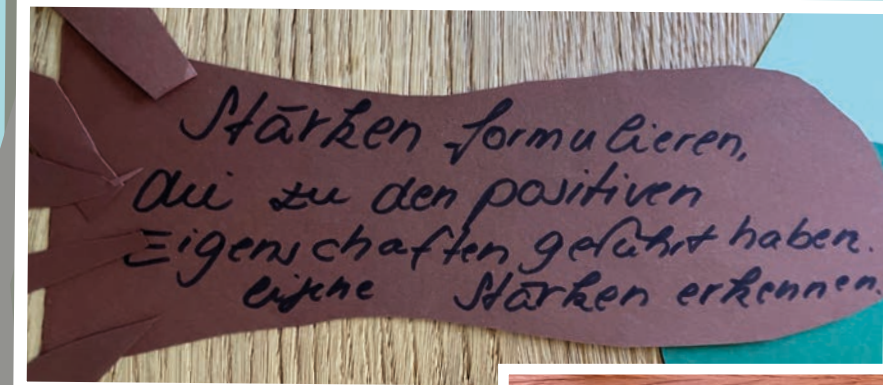 Stärken formulieren,
die zu den positiven
Eigenschaften geführt haben.
eigene Stärken erkennen.